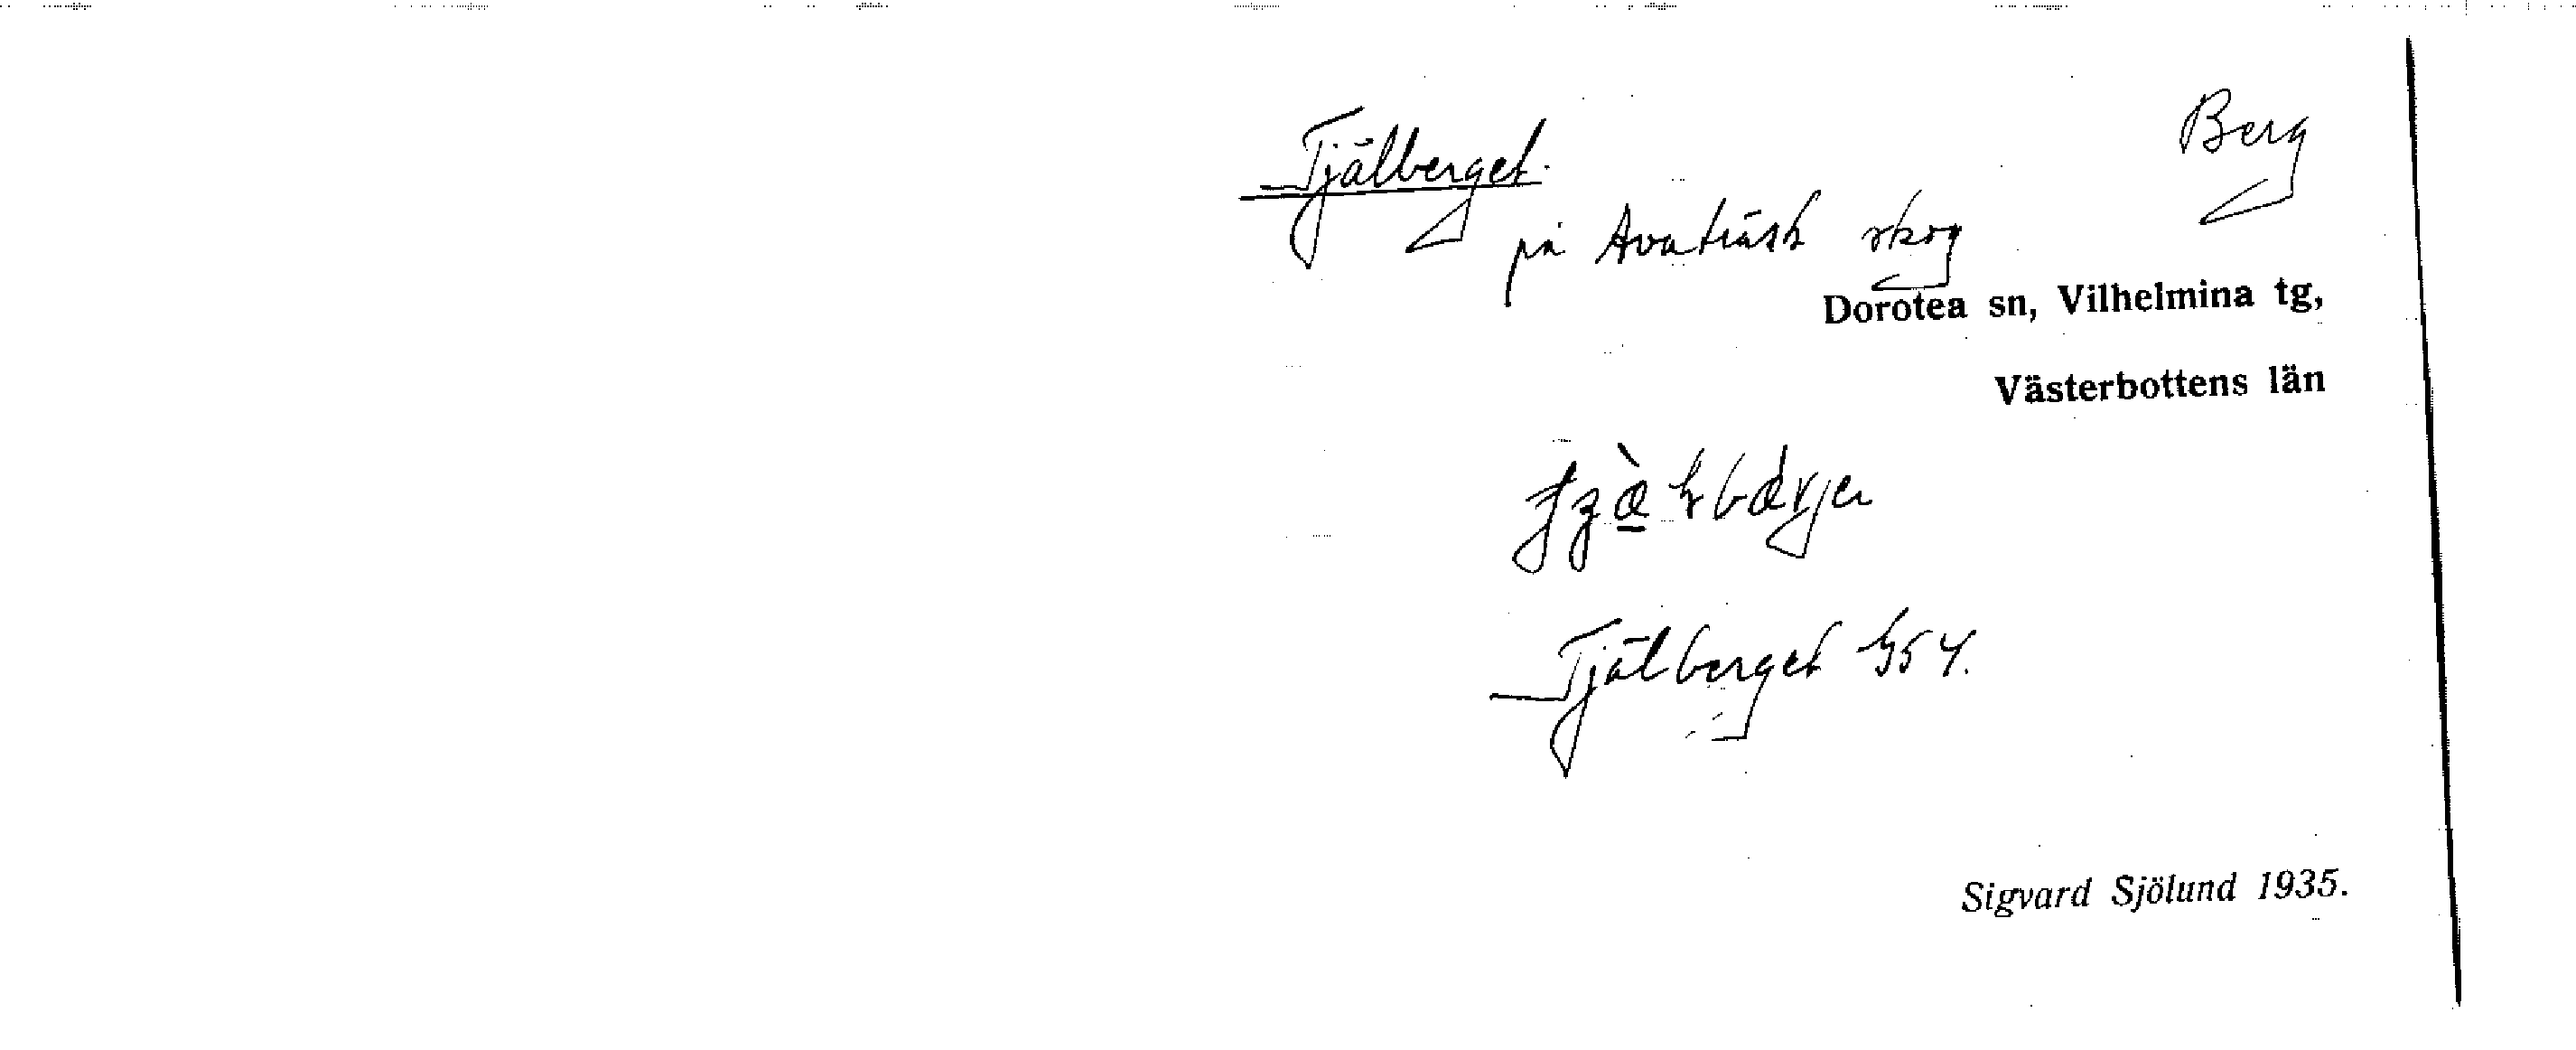 Tjälberget. Berg
på Avaträsk skog
Dorotea sn, Vilhelmina tg,
Västerbottens län
Tjälberget
Sigvard Sjölund 1935.